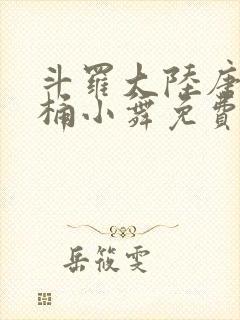 斗羅大陸唐
桶小舞免費
岳筱雯